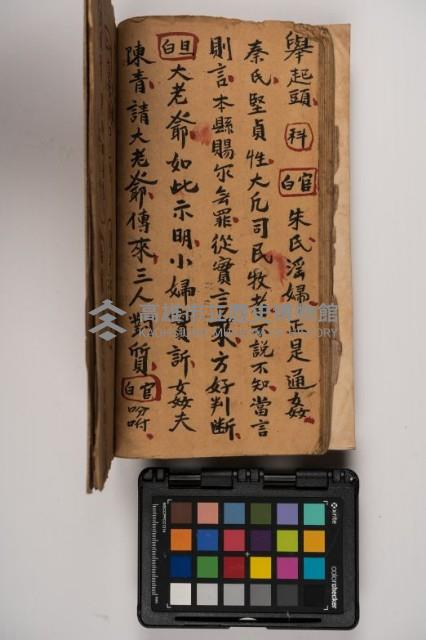 舉起頭科官白朱氏淫婦正是通姦
秦氏堅貞性大凡司民牧者不說不知當言
則言本縣賜尔無罪從實言來方好判斷
旦白大老爺如此示明小婦 訴姦夫
陳青請大老爺傳來三人對質官白吩咐
高雄市立歷史博物館
KAOHSIUNG MUSEUM OF HISTORY
x-rite
colorchecker